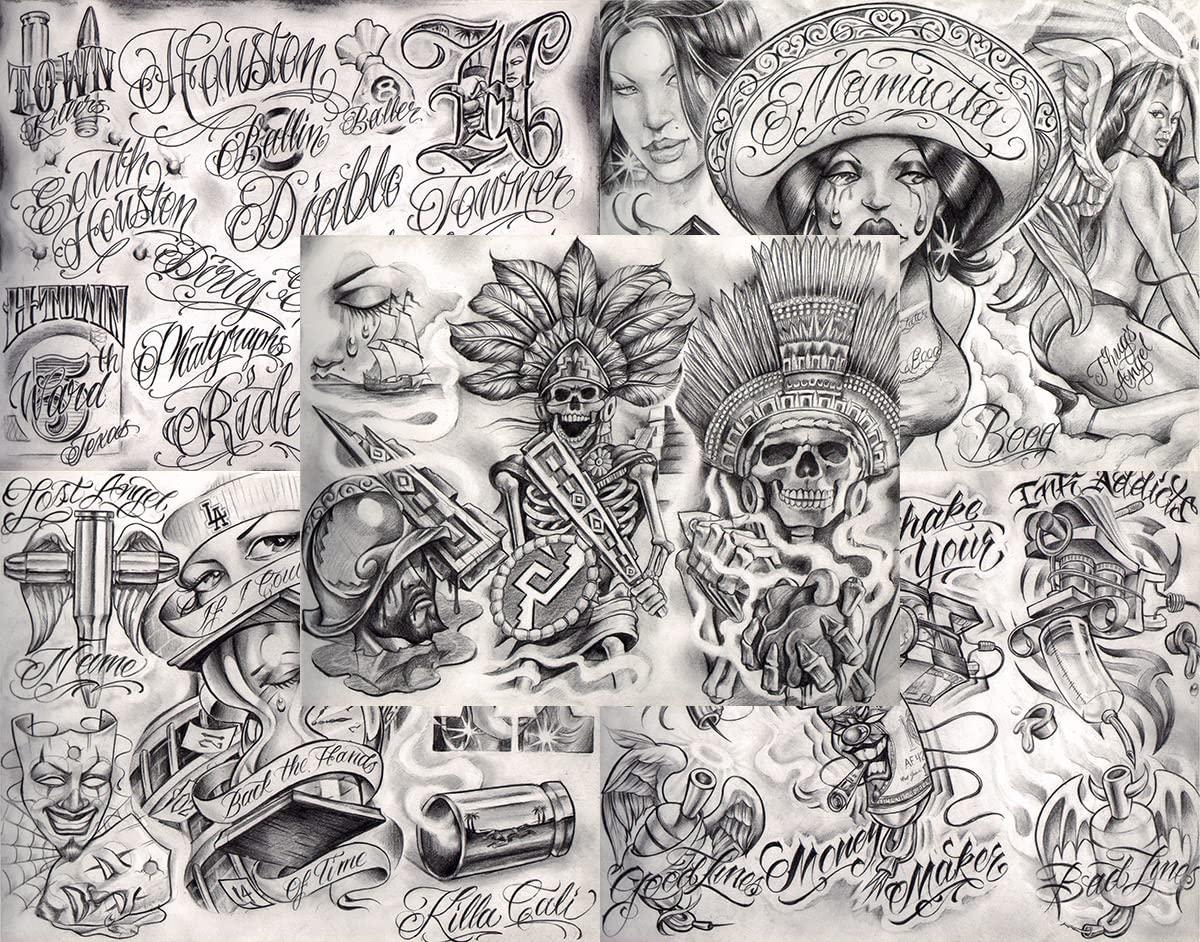 TOWN
Killers
Houston
Ballin
8
Baller
H
South
Houston
Diablo
Towner
Dirty
H-TOWN
5th
Ward
Texas
Phatgraphs
Ride
Mamacita
Boog
Lost Angel
Name
LA
If I Could
21
Back the Hands
14
Of Time
Killa Cali
Shake
Your
Ink Addicts
Good Lines
Money
Maker
Bad Lines